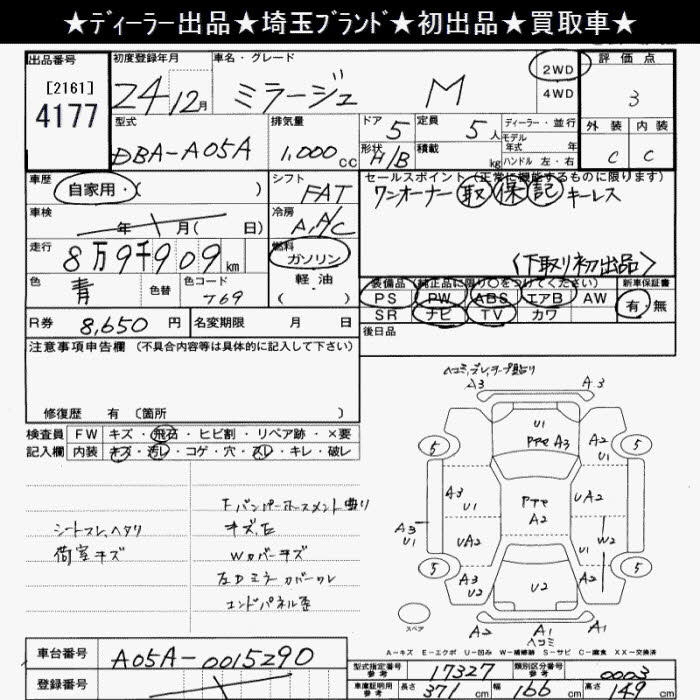 ★ディーラー出品★埼玉ブランド★初出品★買取車★
出品番号
[2161]
4177
初度登録年月
24 12月
車名・グレード
ミラージュ M
2WD
4WD
評価点
3
型式
DBA-A05A
排気量
1,000 cc
ドア 5
定員 5人
形状 H/B
積載 kg
ディーラー・並行
モデル年式 年
ハンドル 左・右
外装 内装
C C
車歴
自家用・( )
シフト
FAT
セールスポイント (正常に機能するものに限ります)
ワンオーナー 取 保 記 キーレス
〈下取り初出品〉
車検
年 月( 日)
冷房
A/A/C
走行
8万9千909km
燃料
ガソリン
軽油
( )
色
青
色替
色コード
T69
装備品 (純正品に限り○をつけてください)
PS PW ABS エアB AW
SR ナビ TV カワ
新車保証書
有 無
R券 8,650円
名変期限 月 日
後日品
注意事項申告欄 (不具合内容等は具体的に記入して下さい)
修復歴 有 〔箇所 〕
検査員記入欄
FW キズ・飛石・ヒビ割・リペア跡・×要
内装 キズ・汚レ・コゲ・穴・スレ・キレ・破レ
シートスレ、ヘタリ
荷室キズ
Fバンパーホースメント曲り
キズ、E
Wカバーキズ
左Dミラーカバーワレ
エンドパネル歪
ヘコミ、ズレ、テープ貼り
A3 A3
5 5
U1
PPE A3
A2
U1
A3
U1
PTE
A2
UA2
A3
U1
UA2
W2
5 5
A3
U2
U2
A2
U1
スペア
A2 A1 A1
ヘコミ
A-キズ E-エクボ U-凹み W-補修跡 S-サビ C-腐食 XX-交換済
車台番号
A05A-0015290
登録番号
型式指定番号 参考 17327
類別区分番号 参考 0003
車庫証明用 参考 長さ 371 cm 幅 166 cm 高さ 149 cm